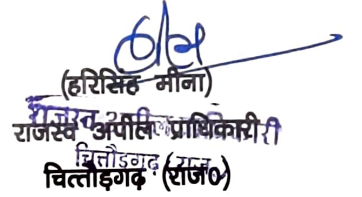 (हरिसिंह मीना)
राजस्व अपील प्राधिकारी
चित्तौड़गढ़ (राज०)